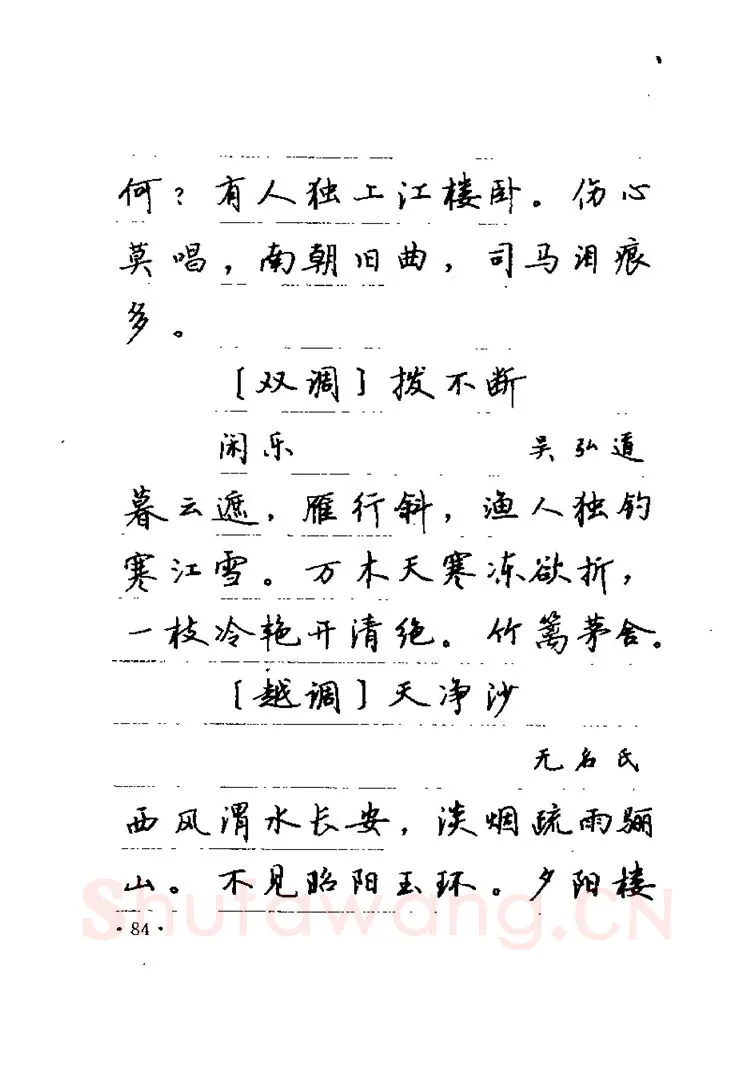 何？有人独上江楼卧。伤心
莫唱，南朝旧曲，司马泪痕
多。
［双调］拨不断
闲乐 吴弘道
暮云遮，雁行斜，渔人独钓
寒江雪。万木天寒冻欲折，
一枝冷艳开清绝。竹篱茅舍。
［越调］天净沙
无名氏
西风渭水长安，淡烟疏雨骊
山。不见昭阳玉环。夕阳楼
Shufawang.CN
·84·